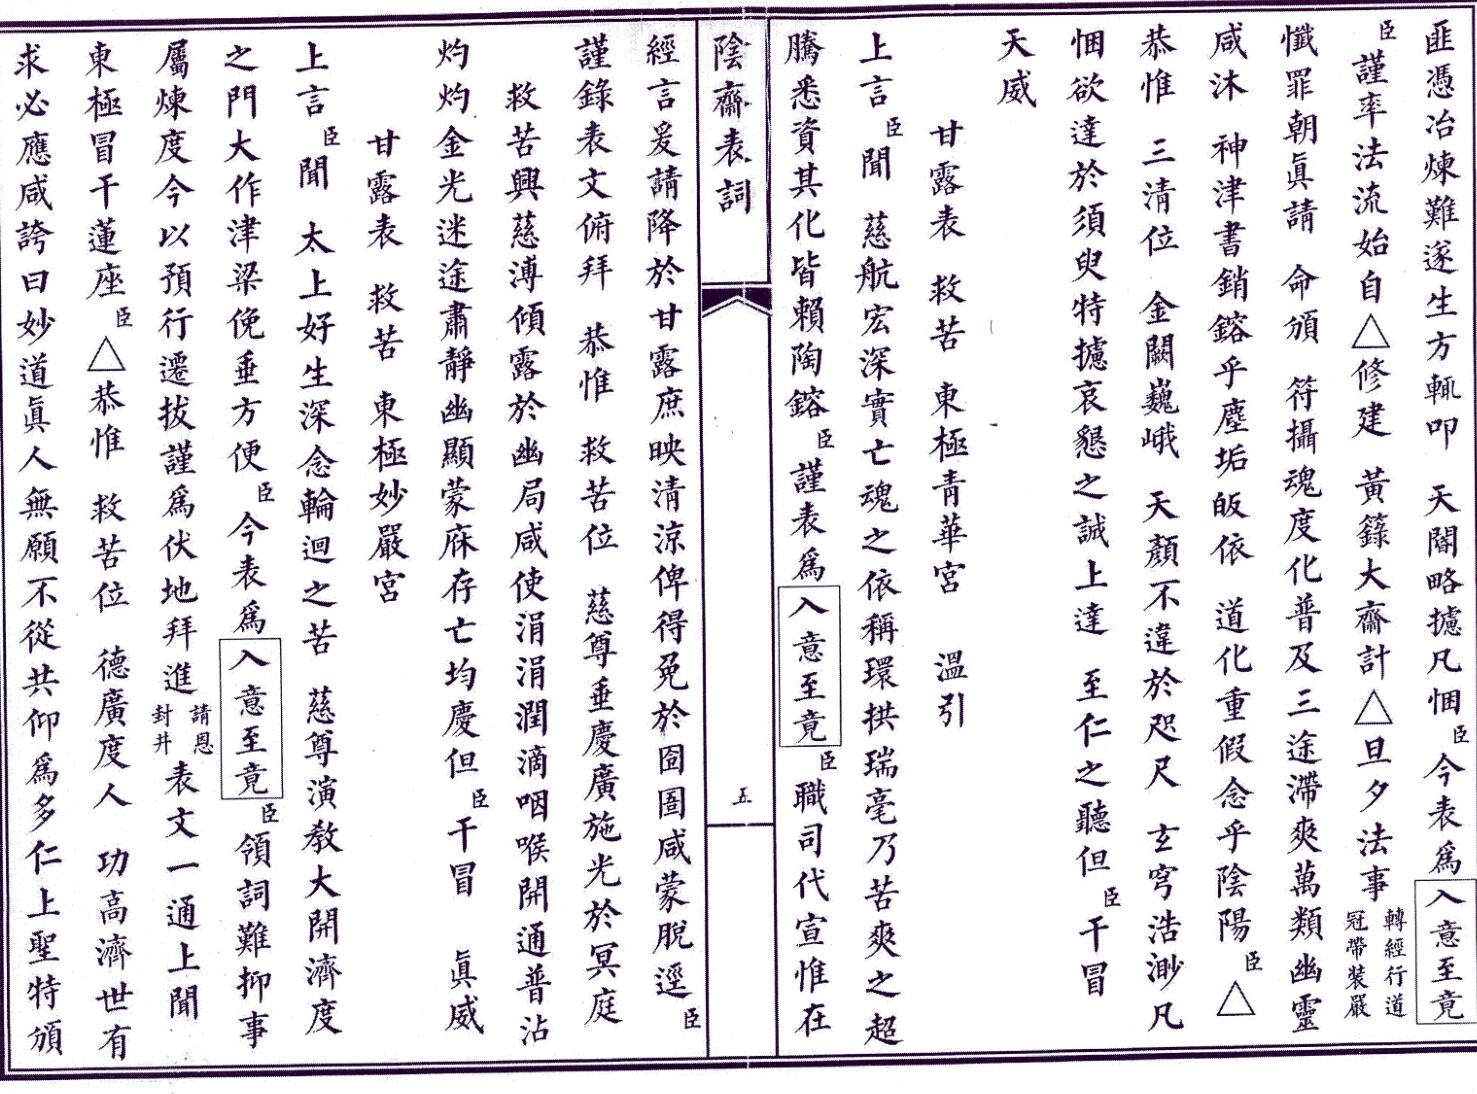 匪憑冶煉難遂生方輒叩　天閽略攄凡悃臣今表爲入意至竟
臣謹率法流始自△修建　黃籙大齋計△旦夕法事轉經行道冠帶裝嚴
懺罪朝眞請　命頒　符攝魂度化普及三途滯爽萬類幽靈
咸沐　神津書銷鎔乎塵垢皈依　道化重假念乎陰陽臣△
恭惟　三清位　金闕巍峨　天顏不違於咫尺　玄穹浩渺凡
悃欲達於須臾特攄哀懇之誠上達　至仁之聽但臣干冒
天威
甘露表　救苦　東極青華宮　溫引
上言臣聞　慈航宏深實亡魂之依稱環拱瑞毫乃苦爽之超
騰悉資其化皆賴陶鎔臣謹表爲入意至竟臣職司代宣惟在
陰齋表詞
五
經言爰請降於甘露庶映清涼俾得免於囹圄咸蒙脫逕臣
謹錄表文俯拜　恭惟　救苦位　慈尊垂慶廣施光於冥庭
救苦興慈溥傾露於幽局咸使涓涓潤滴咽喉開通普沾
灼灼金光迷途肅靜幽顯蒙庥存亡均慶但臣干冒　眞威
甘露表　救苦　東極妙嚴宮
上言臣聞　太上好生深念輪迴之苦　慈尊演教大開濟度
之門大作津梁俛垂方便臣今表爲入意至竟臣領詞難抑事
屬煉度今以預行遷拔謹爲伏地拜進請恩封井表文一通上聞
東極冒干蓮座臣△恭惟　救苦位　德廣度人　功高濟世有
求必應咸誇曰妙道眞人無願不從共仰爲多仁上聖特頒